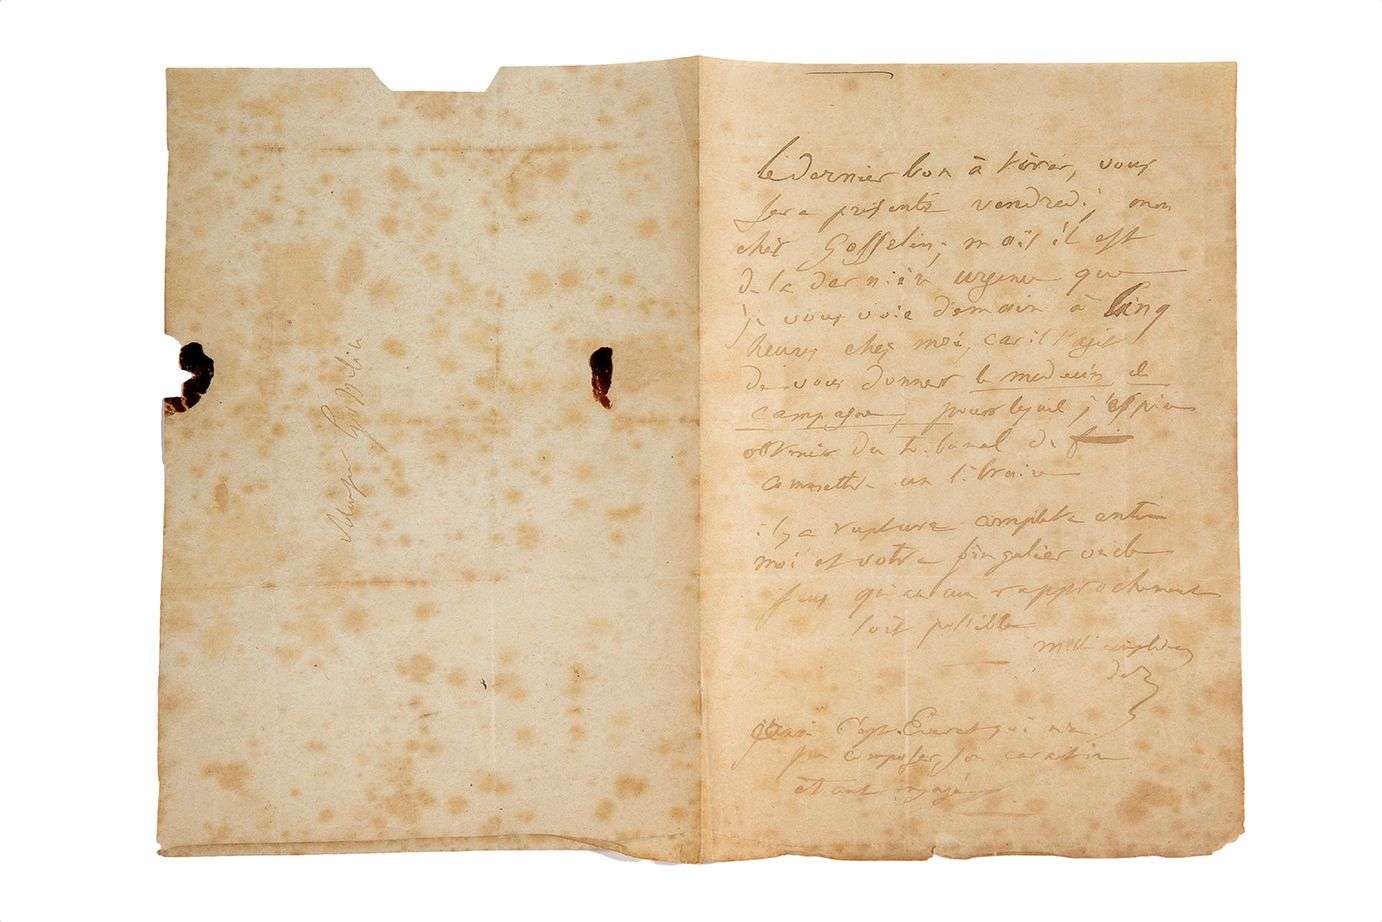 Monsieur Gosselin
le dernier bon à tirer, vous
sera présenté vendredi, mon
cher Gosselin; mais il est
de la dernière urgence que
je vous voie demain à cinq
heures chez moi, car il s'agit
de vous donner le medecin de
campagne, pour lequel j'espère
obtenir du tribunal de
commettre un libraire
il y a rupture complete entre
moi et votre singulier oncle
sans qu'aucun rapprochement
soit possible
mille compl
de B
c'est Everat qui n'a
pu composer, son caractère
étant engagé